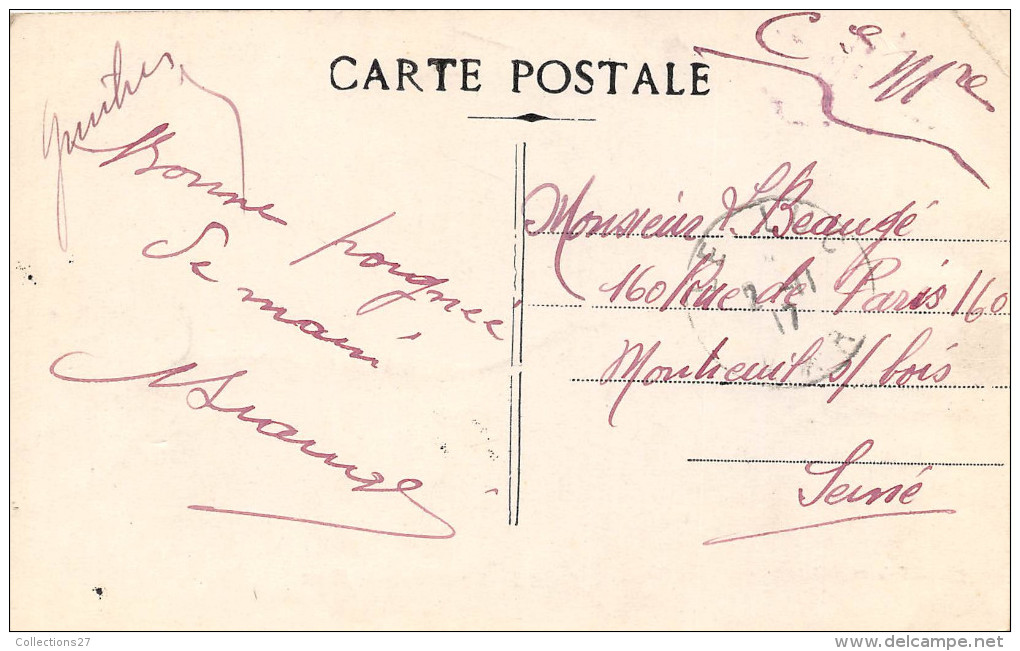 CARTE POSTALE
Cie Mre
Bonne poignée
de main
Monsieur L. Beaugé
160 Rue de Paris 160
Montreuil s/ bois
Seine
2 - 11
17
Collections27
delcampe.net